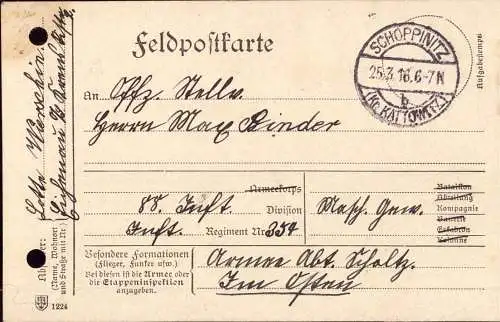 Feldpostkarte
SCHOPPINITZ
25.3.16.6-7N
b
(Kr. KATTOWITZ)
Aufgabestempel
An Offz. Stellv.
Herrn Max Binder
Armeekorps
88. Inft. Division
Inft. Regiment Nr. 352
Masch. Gew.
Bataillon
Abteilung
Kompagnie
Batterie
Eskadron
Kolonne
Besondere Formationen
(Flieger, Funker usw.)
Bei diesen ist die Armee oder
die Etappeninspektion
anzugeben.
Armee Abt. Scholtz.
Im Osten
Absender:
(Name, Wohnort
und Straße mit Nr.)
Lotte
Eichenau
1224